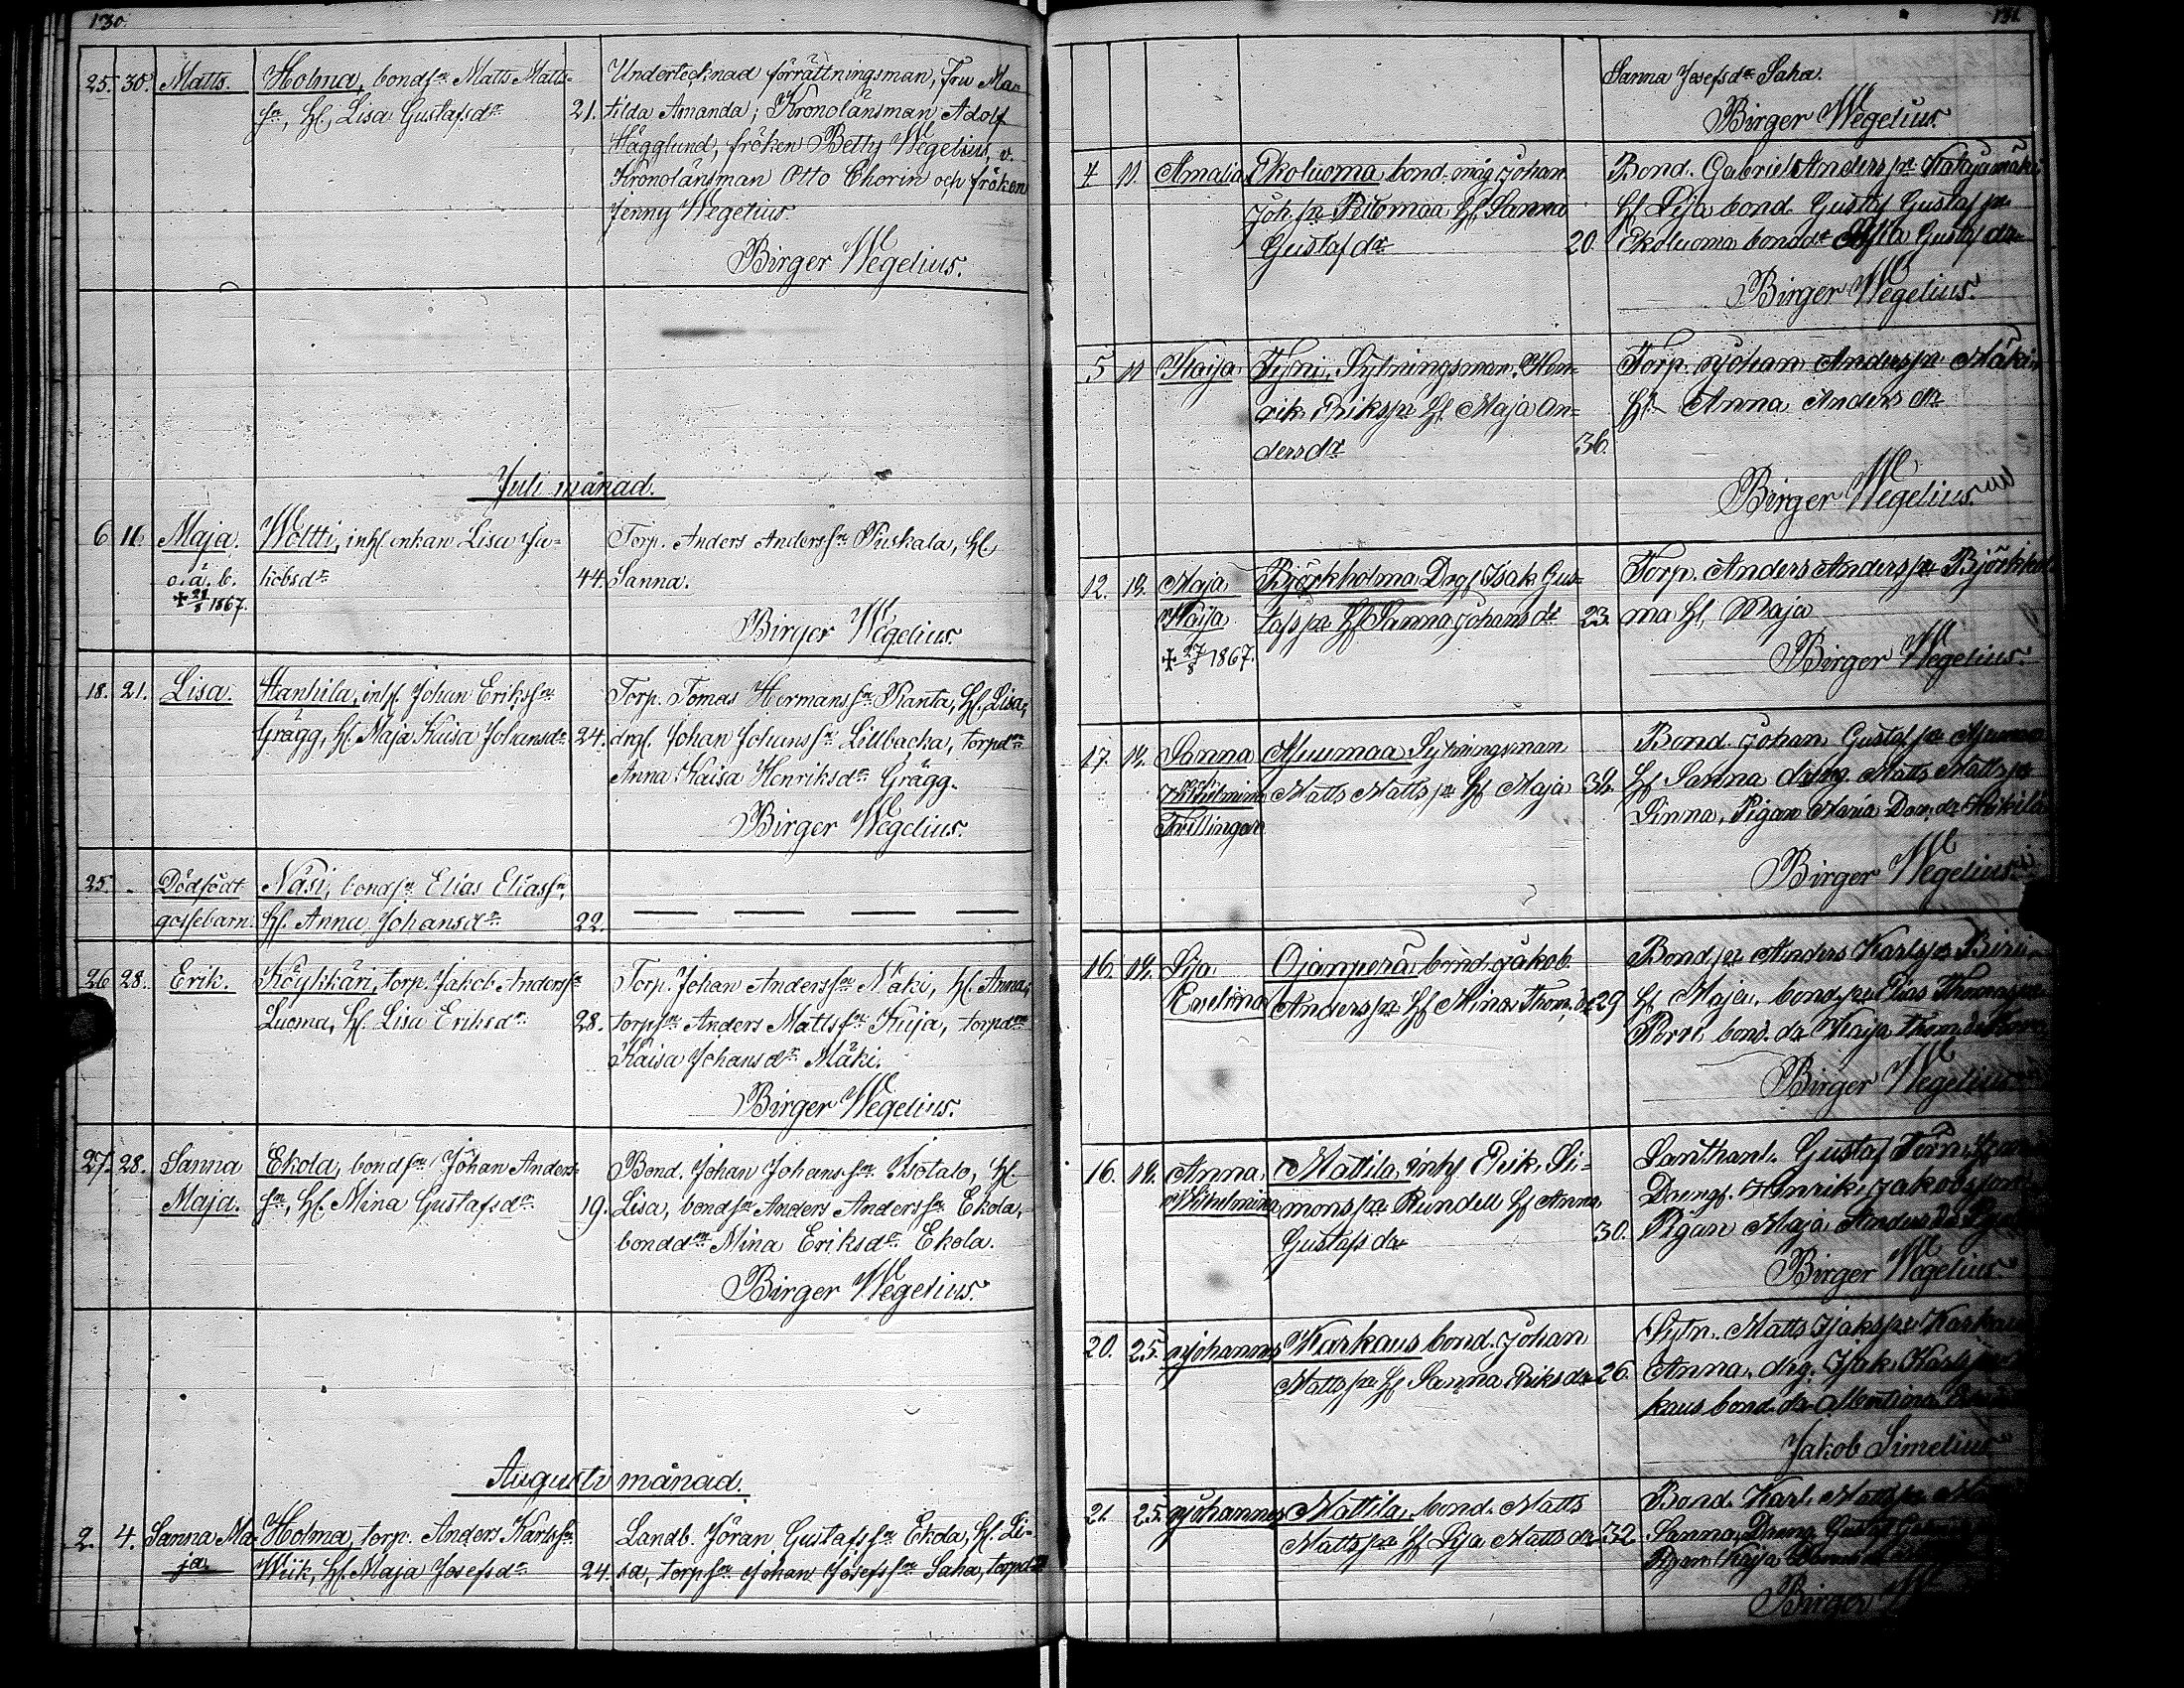 130.
25. 30. Matts. Holma, bondsn Matts Matts-
sn, H. Lisa Gustafsdr 21.
Undertecknad förrättningsman, Fru Ma-
tilda Amanda; Kronolänsman Adolf
Hägglund, fröken Betty Wegelius, v.
Kronolänsman Otto Chorin och fröken
Jenny Wegelius.
Birger Wegelius.
Juli månad.
6 11. Maja. Woltti, inh. enkan Lisa Ja-
o. ä. b. kobsdr 44.
✠ 21/8 1867.
Torp. Anders Anderssn Puskala, H.
Sanna.
Birger Wegelius.
18. 21. Lisa. Hanhila, inh. Johan Erikssn
Grägg, H. Maja Kaisa Johansdr 24.
Torp. Tomas Hermanssn Ranta, H. Lisa,
drgl. Johan Johanssn Lillbacka, torpdr
Anna Kaisa Henriksdr Grägg.
Birger Wegelius.
25. - Dödfödt Näsi, bondsn Elias Eliassn,
gossebarn. H. Anna Johansdr 22.
26 28. Erik. Köykkäri, torp. Jakob Anderssn
Luoma, H. Lisa Eriksdr 28.
Torp. Johan Anderssn Mäki, H. Anna;
torpsn Anders Mattssn Kuja, torpdr
Kaisa Johansdr Mäki.
Birger Wegelius.
27. 28. Sanna Ekola, bondsn Johan Anders-
Maja. sn, H. Mina Gustafsdr 19.
Bond. Johan Johanssn Isotalo, H.
Lisa, bondsn Anders Anderssn Ekola,
bonddr Mina Eriksdr Ekola.
Birger Wegelius.
Augusti månad.
2. 4. Sanna Ma- Holma, torp. Anders Karlssn
ja Wiik, H. Maja Josefsdr 24.
Landb. Jöran Gustafssn Ekola, H. Li-
sa, torpsn Johan Josefssn Saha, torpdr
131
Sanna Josefsdr Saha.
Birger Wegelius.
4 11. Amalia Ekoluoma bond. måg Johan
Joh.sn Peltomaa H. Sanna
Gustafdr 20.
Bond. Gabriel Anderssn Katajamäki
H. Lisa bond. Gustaf Gustafsn
Ekoluoma bonddr Gustafdr
Birger Wegelius.
5 11 Kaisa Sytningsman Hen-
rik Erikssn H. Maja An-
dersdr 36.
Torp. Johan Anderssn Mäki,
H. Anna Andersdr
Birger Wegelius
12. 18. Maja Björkholma Drgl Isak Gus-
Kaisa tafssn H. Sanna Johansdr 23.
✠ 27/8 1867.
Torp. Anders Anderssn Björkhol-
ma H. Maja
Birger Wegelius.
17. 18. Sanna Ajuumaa Sytningsman
Wilhelmina Matts Mattssn H. Maja
Tvillingar
Bond. Johan Gustafsn
H. Sanna dräng Matts Mattssn
Linna, Pigan Maria
Birger Wegelius
16. 18. Lisa Ojanperä bond. Jakob
Evelina Anderssn H. Mina Thom.dr 29
Bondsn Anders Karlssn
H. Maja, bondsn Elias Thomassn
bond.dr Kaisa
Birger Wegelius
16. 18. Anna Mattila, inh. Erik Si-
Wilhelmina monssn Rundell H. Anna
Gustafsdr 30.
Gustaf
Drengs. Henrik Jakobsson
Pigan Maja Andersdr
Birger Wegelius.
20. 25. Johannes Karkaus bond. Johan
Mattssn H. Sanna Eriksdr 26.
Sytn. Matts
Anna, drg. Isak
kaus bond.dr Albertina
Jakob Simelius
21. 25. Johannes Mattila, bond. Matts
Mattssn H. Lisa Mattsdr 32
Bond. Karl Mattssn
Sanna, Dreng Gustaf
Pigan Kaisa
Birger